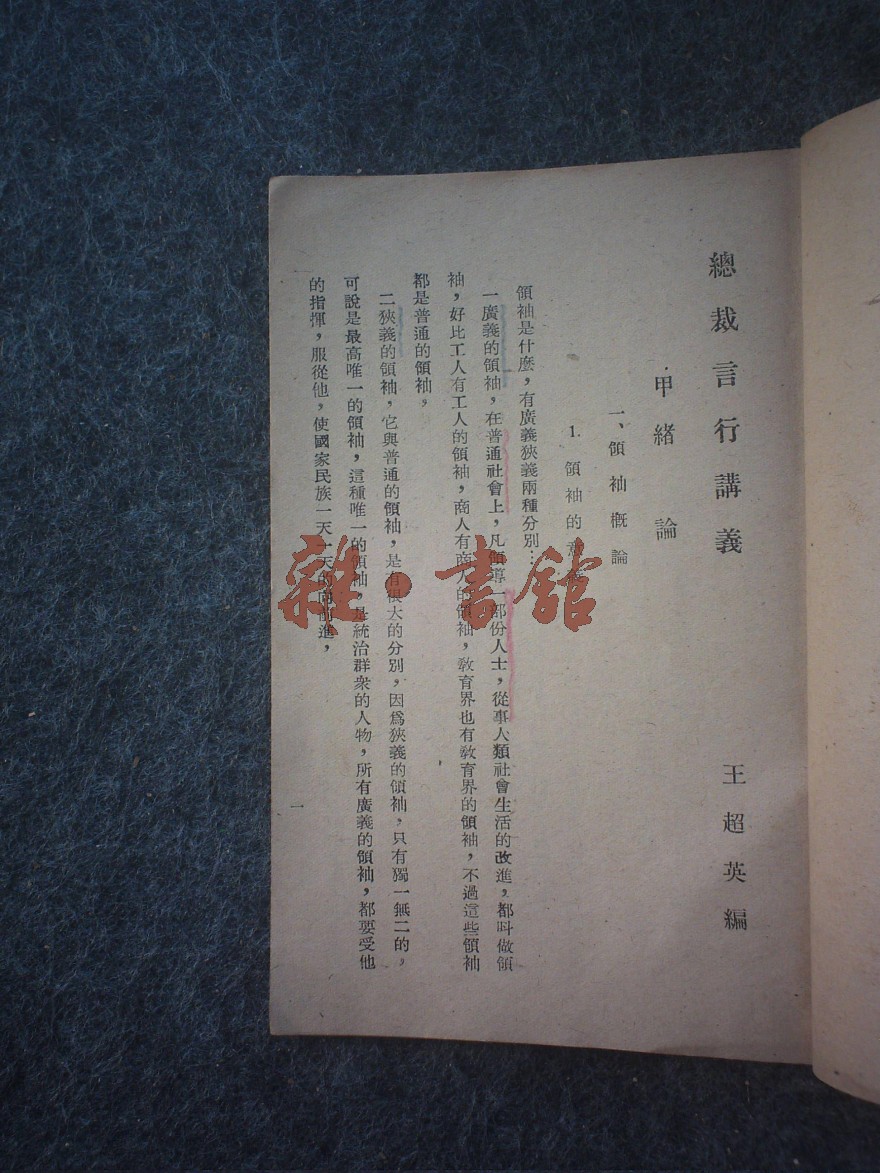 總裁言行講義
王超英編
甲緒論
一、領袖概論
1. 領袖的意
領袖是什麼，有廣義狹義兩種分別：
一廣義的領袖，在普通社會上，凡領導一部份人士，從事人類社會生活的改進，都叫做領
袖，好比工人有工人的領袖，商人有商人的領袖，敎育界也有敎育界的領袖，不過這些領袖
都是普通的領袖，
二狹義的領袖，它與普通的領袖，是有很大的分別，因爲狹義的領袖，只有獨一無二的，
可說是最高唯一的領袖，這種唯一的領袖，是統治群衆的人物，所有廣義的領袖，都要受他
的指揮，服從他，使國家民族一天一天的向前進，
一
雜·書館